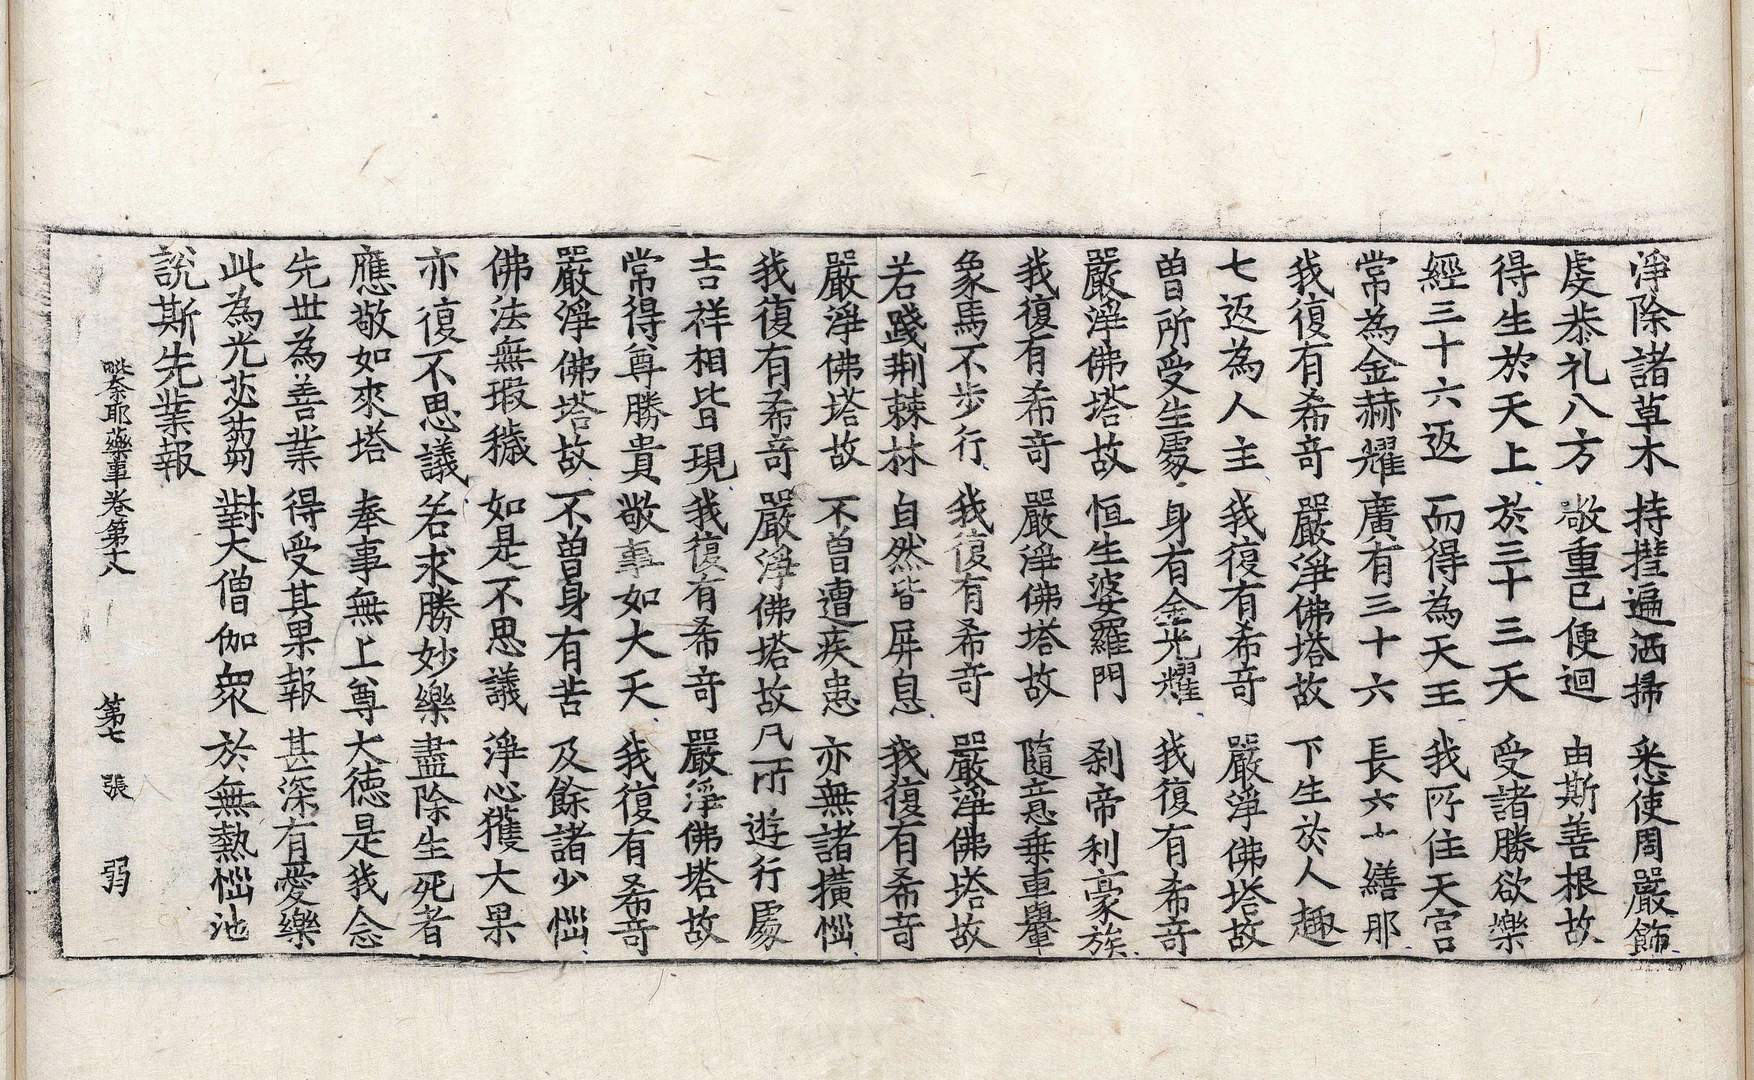 淨除諸草木　持篲遍洒掃　悉使周嚴飾
虔恭礼八方　敬重已便迴　由斯善根故
得生於天上　於三十三天　受諸勝欲樂
經三十六返　而得為天王　我所住天宮
常為金赫耀　廣有三十六　長六十繕那
我復有希奇　嚴淨佛塔故　下生於人趣
七返為人主　我復有希奇　嚴淨佛塔故
曾所受生處　身有金光耀　我復有希奇
嚴淨佛塔故　恒生婆羅門　刹帝利豪族
我復有希奇　嚴淨佛塔故　隨意乗車轝
象馬不步行　我復有希奇　嚴淨佛塔故
若踐荆棘林　自然皆屏息　我復有希奇
嚴淨佛塔故　不曾遭疾患　亦無諸擯惱
我復有希奇　嚴淨佛塔故　凡所遊行處
吉祥相皆現　我復有希奇　嚴淨佛塔故
常得尊勝貴　敬事如大天　我復有希奇
嚴淨佛塔故　不曾身有苦　及餘諸少惱
佛法無瑕穢　如是不思議　淨心獲大果
亦復不思議　若求勝妙樂　盡除生死者
應敬如來塔　奉事無上尊　大徳是我念
先世為善業　得受其果報　甚深有愛樂
此為光苾芻　對大僧伽衆　於無熱惱池
說斯先業報
毗奈耶藥事卷第十八　第七　張　弱